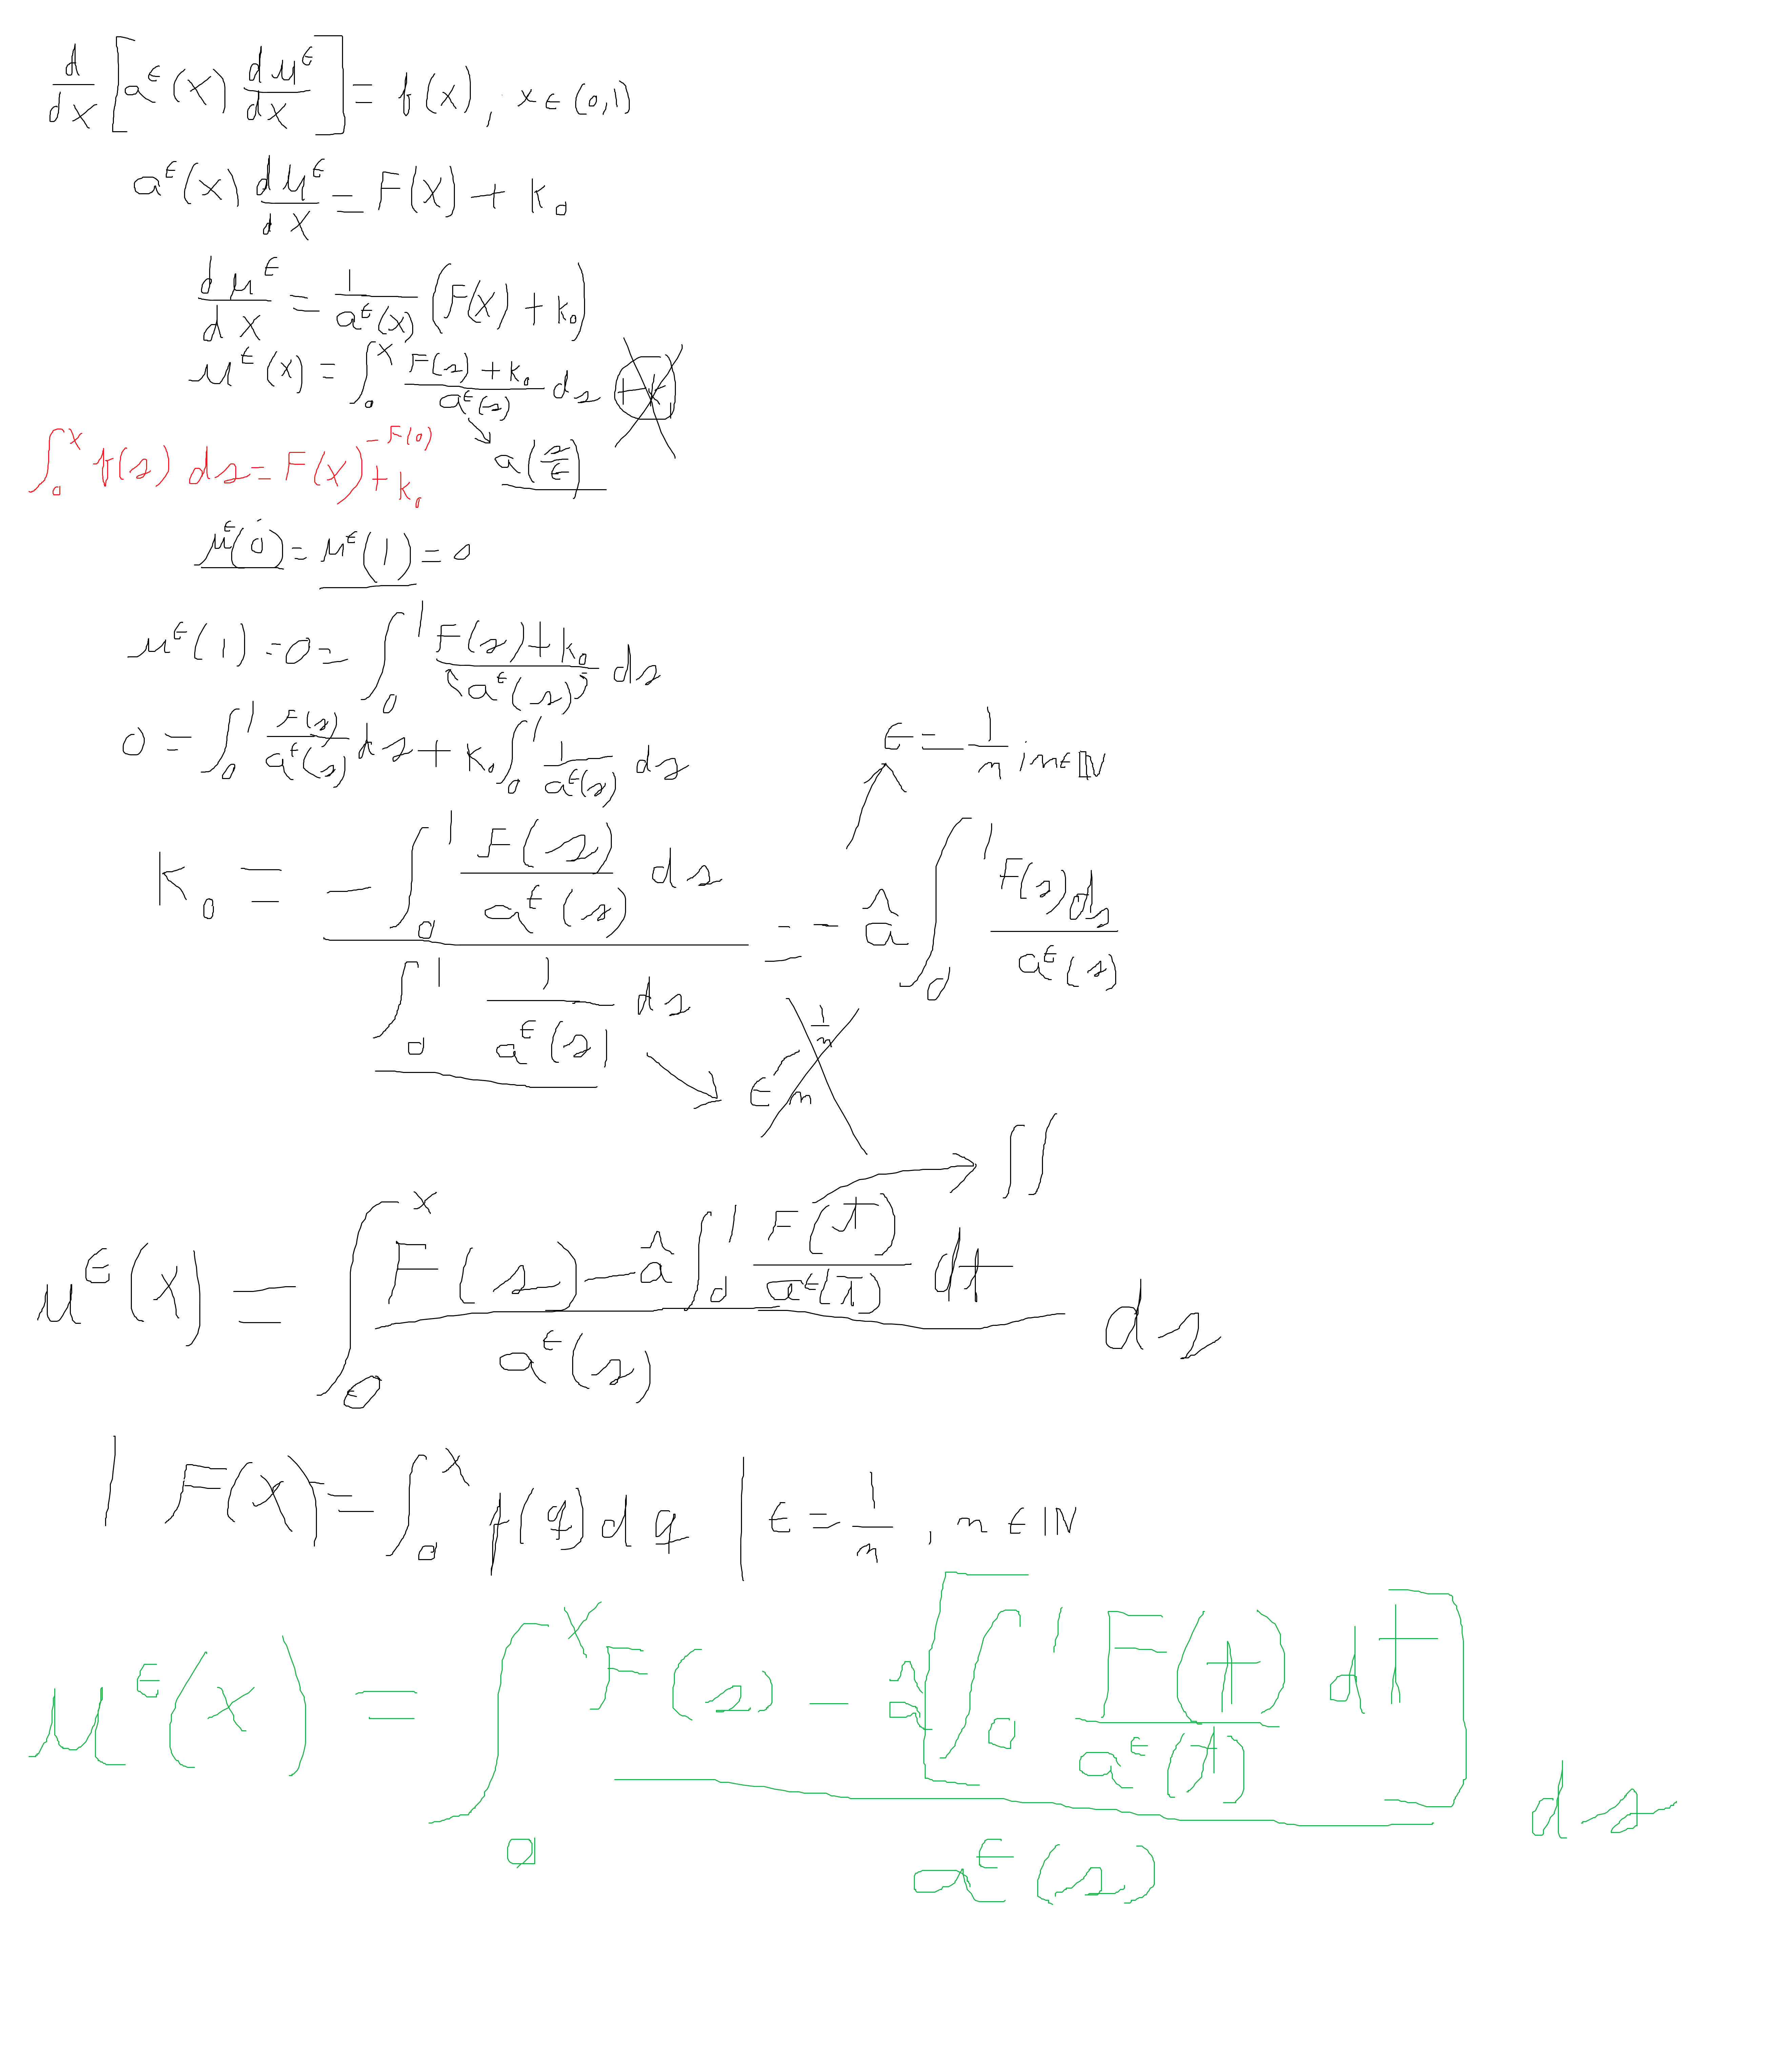 d/dx [a^ε(x) du^ε/dx] = f(x), x ∈ (0,1)
a^ε(x) du^ε/dx = F(x) + k₀
du^ε/dx = 1/a^ε(x) (F(x) + k₀)
u^ε(x) = ∫₀^x (F(s) + k₀)/a^ε(s) ds + k₁
a(s/ε)
∫₀^x f(s) ds = F(x) - F(0) + k₀
u^ε(0) = u^ε(1) = 0
u^ε(1) = 0 = ∫₀^1 (F(s) + k₀)/a^ε(s) ds
0 = ∫₀^1 F(s)/a^ε(s) ds + k₀ ∫₀^1 1/a^ε(s) ds
ε = 1/n ; n ∈ ℕ
k₀ = (-∫₀^1 F(s)/a^ε(s) ds)/(∫₀^1 1/a^ε(s) ds) = - â ∫₀^1 F(s) ds/a^ε(s)
ε 1/n n
∫∫
u^ε(x) = ∫₀^x (F(s) - â ∫₀^1 F(t)/a^ε(t) dt)/a^ε(s) ds
| F(x) = ∫₀^x f(q) dq | ε = 1/n, n ∈ ℕ
u^ε(x) = ∫₀^x (F(s) - â [∫₀^1 F(t)/a^ε(t) dt])/a^ε(s) ds